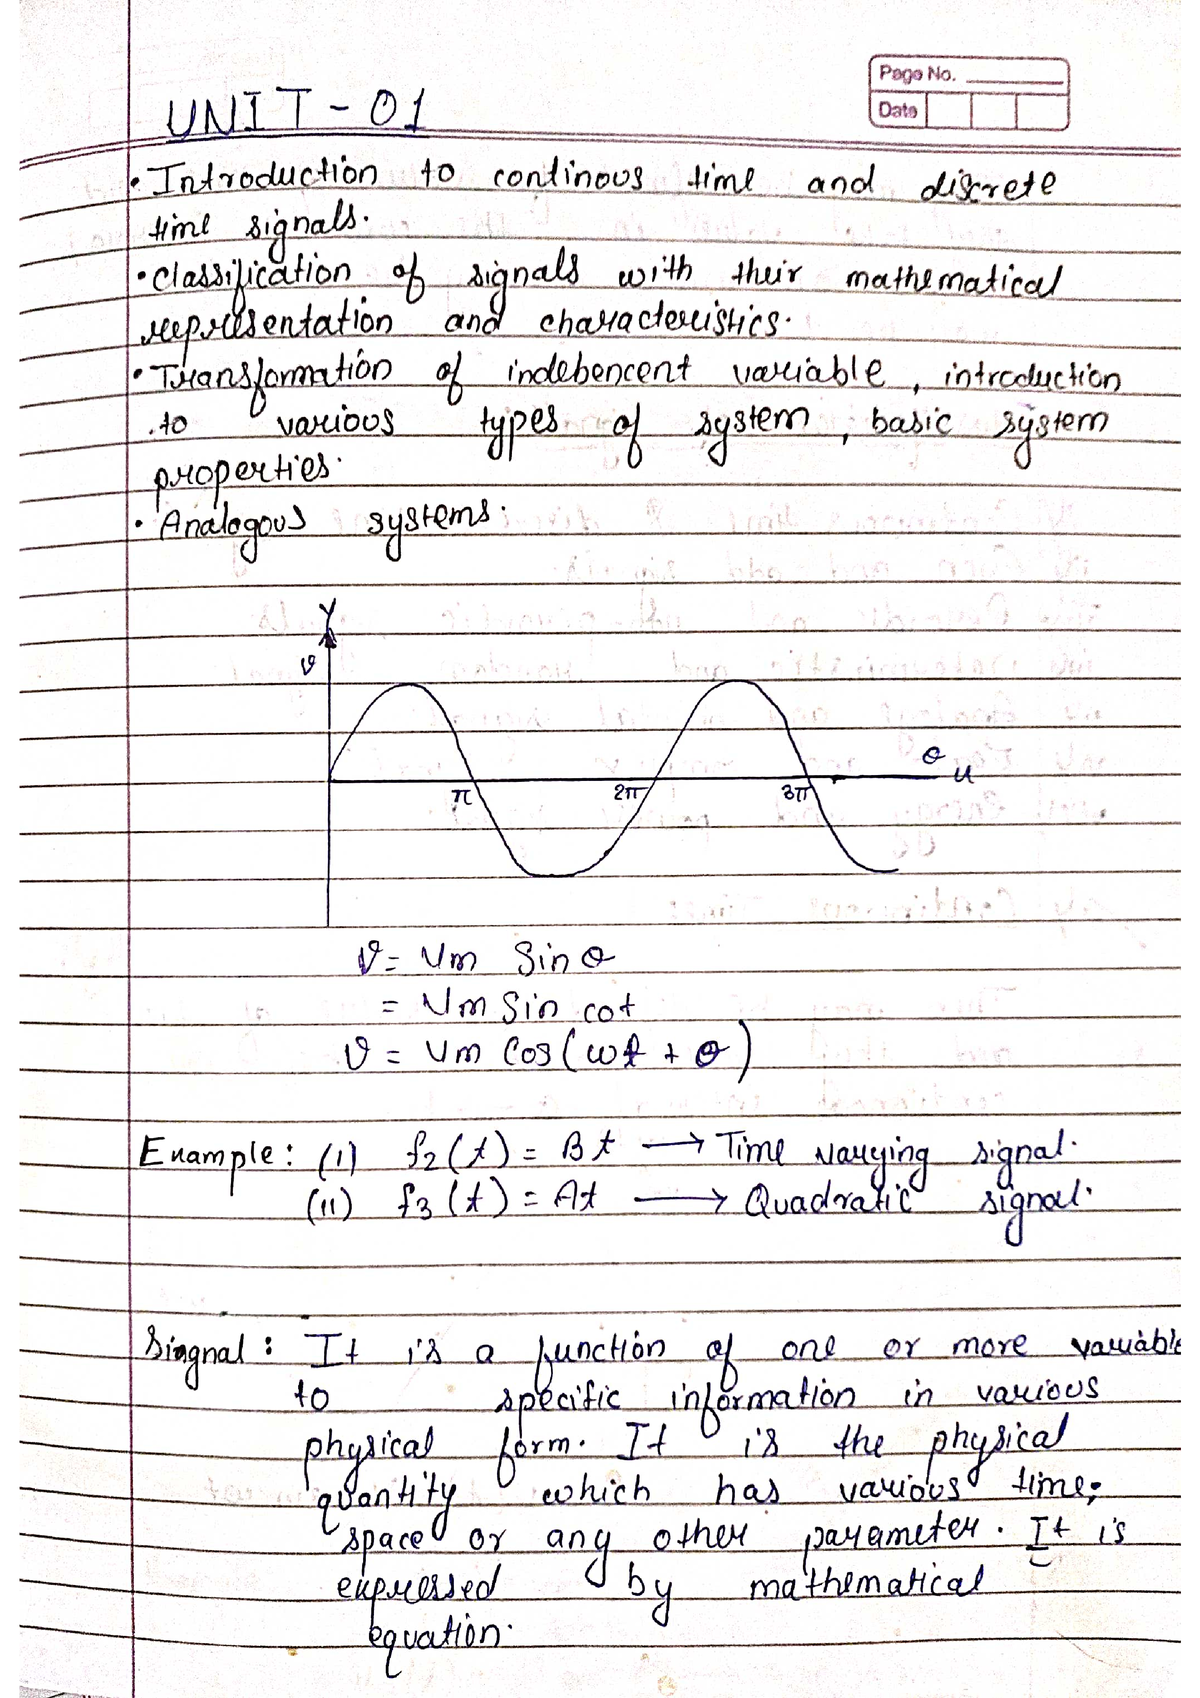 Page No.
Date
UNIT - 01
• Introduction to continous time and discrete
time signals.
• classification of signals with their mathematical
representation and characteristics.
• Transformation of indebencent variable, introduction
to various types of system, basic system
properties.
• Analogous systems.
Y
v
θ
x
π 2π 3π
v = Vm Sin θ
= Vm Sin cot
v = Vm Cos (wt + θ)
Example: (i) f2(t) = Bt → Time varying signal.
(ii) f3(t) = At → Quadratic signal.
Siagnal: It is a function of one or more variable
to specific information in various
physical form. It is the physical
quantity which has various time,
space or any other parameter. It is
expressed by mathematical
equation.